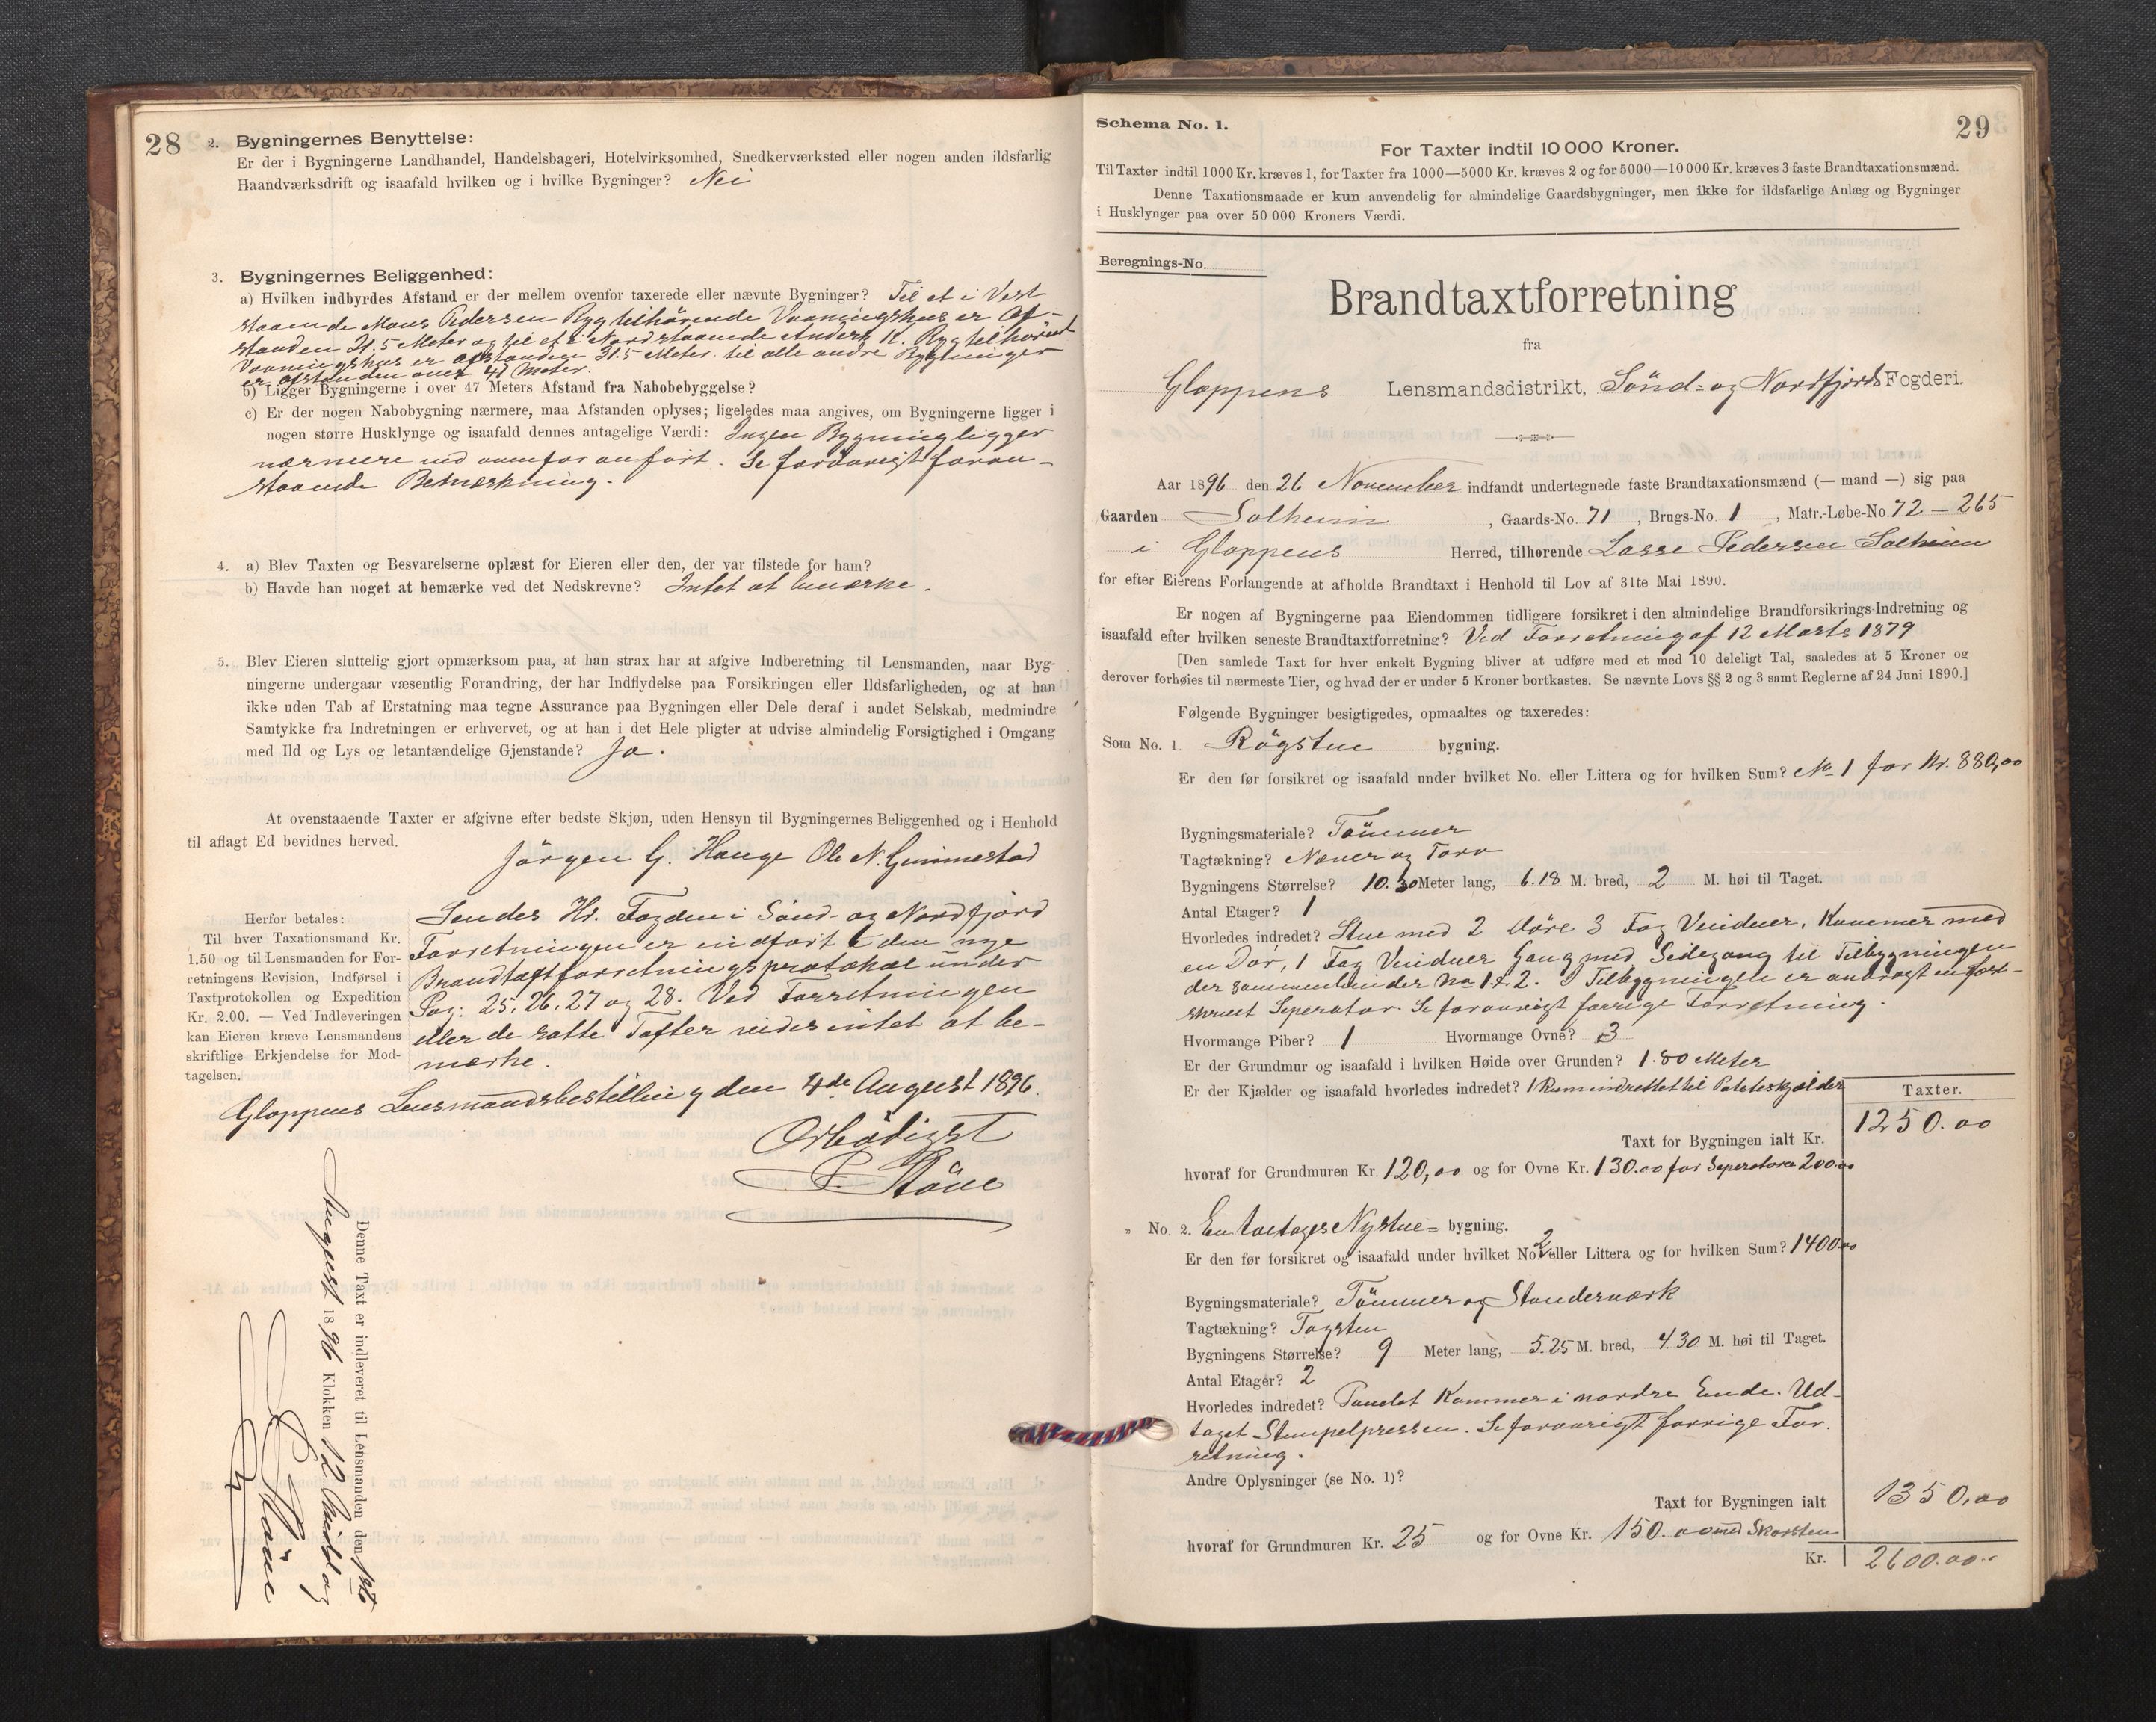 28
2. Bygningernes Benyttelse:
Er der i Bygningerne Landhandel, Handelsbageri, Hotelvirksomhed, Snedkerværksted eller nogen anden ildsfarlig
Haandværksdrift og isaafald hvilken og i hvilke Bygninger? Nei
3. Bygningernes Beliggenhed:
a) Hvilken indbyrdes Afstand er der mellem ovenfor taxerede eller nævnte Bygninger? Til et i Vest
staaende Mons Pedersen Ryg tilhörende Vaaningshus er Af-
standen 21.5 Meter og til et i Nord staaende Anders K. Ryg tilhörend
Vaaningshus er afstanden 31.5 Meter. til alle andre Bygninger
er afstanden over 47 Meter.
b) Ligger Bygningerne i over 47 Meters Afstand fra Nabobebyggelse?
c) Er der nogen Nabobygning nærmere, maa Afstanden oplyses; ligeledes maa angives, om Bygningerne ligger i
nogen større Husklynge og isaafald dennes antagelige Værdi: Ingen Bygning ligger
nærmere end ovenfor anfört. Se forövrigt foran-
staaende Bemærkning.
4. a) Blev Taxten og Besvarelserne oplæst for Eieren eller den, der var tilstede for ham?
b) Havde han noget at bemærke ved det Nedskrevne? Intet at bemærke.
5. Blev Eieren sluttelig gjort opmærksom paa, at han strax har at afgive Indberetning til Lensmanden, naar Byg-
ningerne undergaar væsentlig Forandring, der har Indflydelse paa Forsikringen eller Ildsfarligheden, og at han
ikke uden Tab af Erstatning maa tegne Assurance paa Bygningen eller Dele deraf i andet Selskab, medmindre
Samtykke fra Indretningen er erhvervet, og at han i det Hele pligter at udvise almindelig Forsigtighed i Omgang
med Ild og Lys og letantændelige Gjenstande? Ja.
At ovenstaaende Taxter er afgivne efter bedste Skjøn, uden Hensyn til Bygningernes Beliggenhed og i Henhold
til aflagt Ed bevidnes herved.
Jörgen G. Hauge Ole N. Gimmestad
Herfor betales:
Til hver Taxationsmand Kr.
1.50 og til Lensmanden for For-
retningens Revision, Indførsel i
Taxtprotokollen og Expedition
Kr. 2.00. — Ved Indleveringen
kan Eieren kræve Lensmandens
skriftlige Erkjendelse for Mod-
tagelsen.
Sendes Hr. Fogden i Sönd- og Nordfjord
Forretningen er indfört i den nye
Brandtaxtforretningsprotokol under
Pag: 25, 26, 27 og 28. Ved Forretningen
eller de satte Taxter vides intet at be-
mærke.
Gloppens Lensmandsbestilling den 4de August 1896.
Örbödigst
Denne Taxt er indleveret til Lensmanden den 1ste
August 1896 Klokken 12 Middag
29
Schema No. 1.
For Taxter indtil 10 000 Kroner.
Til Taxter indtil 1000 Kr. kræves 1, for Taxter fra 1000—5000 Kr. kræves 2 og for 5000—10 000 Kr. kræves 3 faste Brandtaxationsmænd.
Denne Taxationsmaade er kun anvendelig for almindelige Gaardsbygninger, men ikke for ildsfarlige Anlæg og Bygninger
i Husklynger paa over 50 000 Kroners Værdi.
Beregnings-No.
Brandtaxtforretning
fra
Gloppens Lensmandsdistrikt, Sönd- og Nordfjords Fogderi.
Aar 1896 den 26 November indfandt undertegnede faste Brandtaxationsmænd (— mand —) sig paa
Gaarden Solheim, Gaards-No. 71, Brugs-No. 1, Matr.-Løbe-No. 72 – 265
i Gloppens Herred, tilhørende Lasse Pedersen Solheim
for efter Eierens Forlangende at afholde Brandtaxt i Henhold til Lov af 31te Mai 1890.
Er nogen af Bygningerne paa Eiendommen tidligere forsikret i den almindelige Brandforsikrings-Indretning og
isaafald efter hvilken seneste Brandtaxtforretning? Ved Forretning af 12 Marts 1879
[Den samlede Taxt for hver enkelt Bygning bliver at udføre med et med 10 deleligt Tal, saaledes at 5 Kroner og
derover forhøies til nærmeste Tier, og hvad der er under 5 Kroner bortkastes. Se nævnte Lovs §§ 2 og 3 samt Reglerne af 24 Juni 1890.]
Følgende Bygninger besigtigedes, opmaaltes og taxeredes:
Som No. 1. Rögstue bygning.
Er den før forsikret og isaafald under hvilket No. eller Littera og for hvilken Sum? No 1 for Kr. 880,00
Bygningsmateriale? Tömmer
Tagtækning? Næver og Torv
Bygningens Størrelse? 10.30 Meter lang, 6.18 M. bred, 2 M. høi til Taget.
Antal Etager? 1
Hvorledes indredet? Stue med 2 Döre 3 Fag Vinduer, Kammer med
en Dör, 1 Fag Vinduer Gang med Sidegang til Tilbygningen
der sammenbinder No 1 & 2. I Tilbygningen er anbragt en fast-
skruet Seperator. Se forövrigt forrige Forretning.
Hvormange Piber? 1 Hvormange Ovne? 3
Er der Grundmur og isaafald i hvilken Høide over Grunden? 1.80 Meter
Er der Kjælder og isaafald hvorledes indredet? 1 Rum indrettet til Poteteskjælder
Taxter.
Taxt for Bygningen ialt Kr. 1250.00
hvoraf for Grundmuren Kr. 120,00 og for Ovne Kr. 130.00 for Seperatoren 200.00
" No. 2. En toetages Nystue- bygning.
Er den før forsikret og isaafald under hvilket No. 2 eller Littera og for hvilken Sum? 1400.00
Bygningsmateriale? Tömmer og Standerværk
Tagtækning? Tagsten
Bygningens Størrelse? 9 Meter lang, 5.25 M. bred, 4.30 M. høi til Taget.
Antal Etager? 2
Hvorledes indredet? Panelet Kammer i nordre Ende. Ud-
taget Stempelpressen. Se forövrigt forrige For-
retning.
Andre Oplysninger (se No. 1)?
Taxt for Bygningen ialt 1350,00
hvoraf for Grundmuren Kr. 25 og for Ovne Kr. 150.00 med Skorsten
Kr. 2600.00